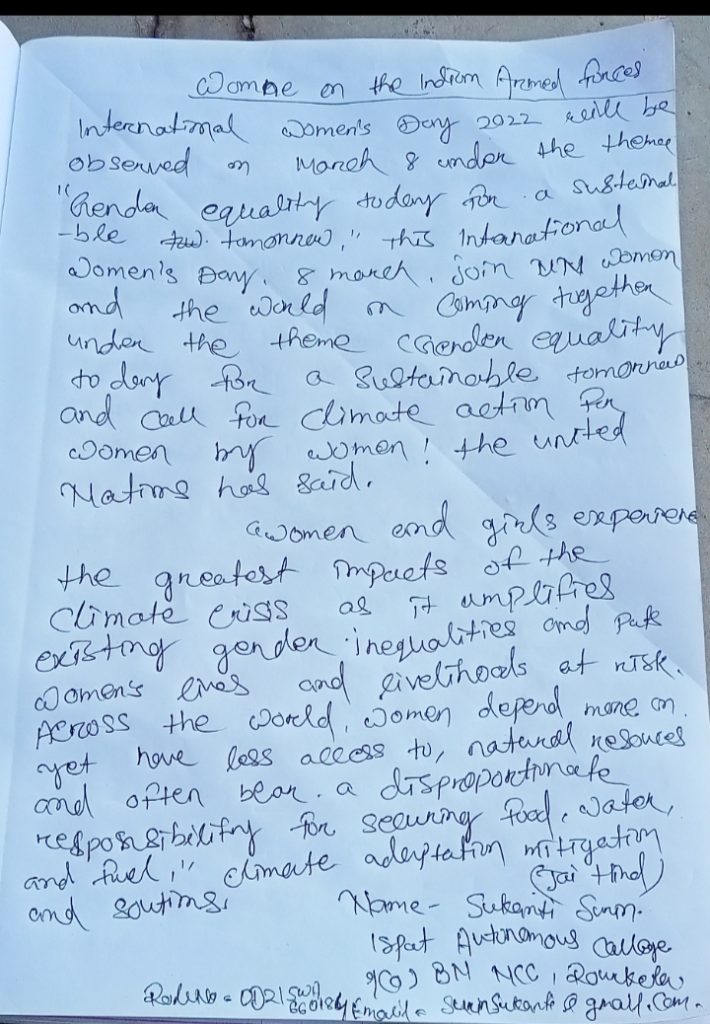 Womne on the Indian Armed forces
International women's Day 2022 will be
observed on March 8 under the themee
"Gender equality today for a sustainal
-ble tomorrow," this International
Women's Day. 8 march. join UN women
and the world on Coming together
under the theme Gender equality
today for a sustainable tomorrow
and call for climate action for
women by women! the united
Nations has said.
women and girls experiene
the greatest impacts of the
climate crisis as it amplifies
existing gender inequalities and puts
women's lives and livelihoods at risk.
Across the world, women depend more on.
yet have less access to, natural resouces
and often bear. a disproportionate
responsibility for securing food, water,
and fuel," climate adaptation mitigation
and soutims. (Jai Hind)
Name - Sukanti Surin.
Ispat Autonomous College
BN NCC, Rourkela
Email = surinsukanti@gmail.com.